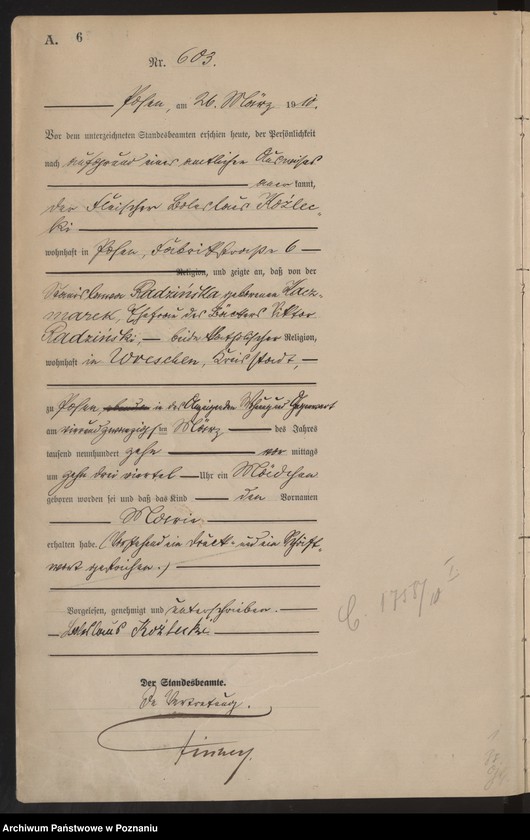 A. 6
Nr. 603.
Posen, am 26. März 1910.
Vor dem unterzeichneten Standesbeamten erschien heute, der Persönlichkeit
nach aufgrund eines amtlichen Ausweises
anerkannt,
der Fleischer Boleslaus Koźlec-
ki
wohnhaft in Posen, Fabrikstraße 6
Religion, und zeigte an, daß von der
Radzińska, geborenen Kacz-
marek, Ehefrau des Bäckers Viktor
Radziński, beide katholischer Religion,
wohnhaft in Wreschen, Kreisstadt,
zu Posen, in des Anzeigenden Wohnung und Gegenwart
am vierundzwanzigsten März des Jahres
tausend neunhundert zehn vor mittags
um zehn drei viertel Uhr ein Mädchen
geboren worden sei und daß das Kind den Vornamen
Maria
erhalten habe. (Vorstehend ein Druck- und ein Schrift-
wort gestrichen.)
Vorgelesen, genehmigt und unterschrieben.
Boleslaus Koźlecki
Der Standesbeamte.
In Vertretung.
C. 1755/10 I
Archiwum Państwowe w Poznaniu